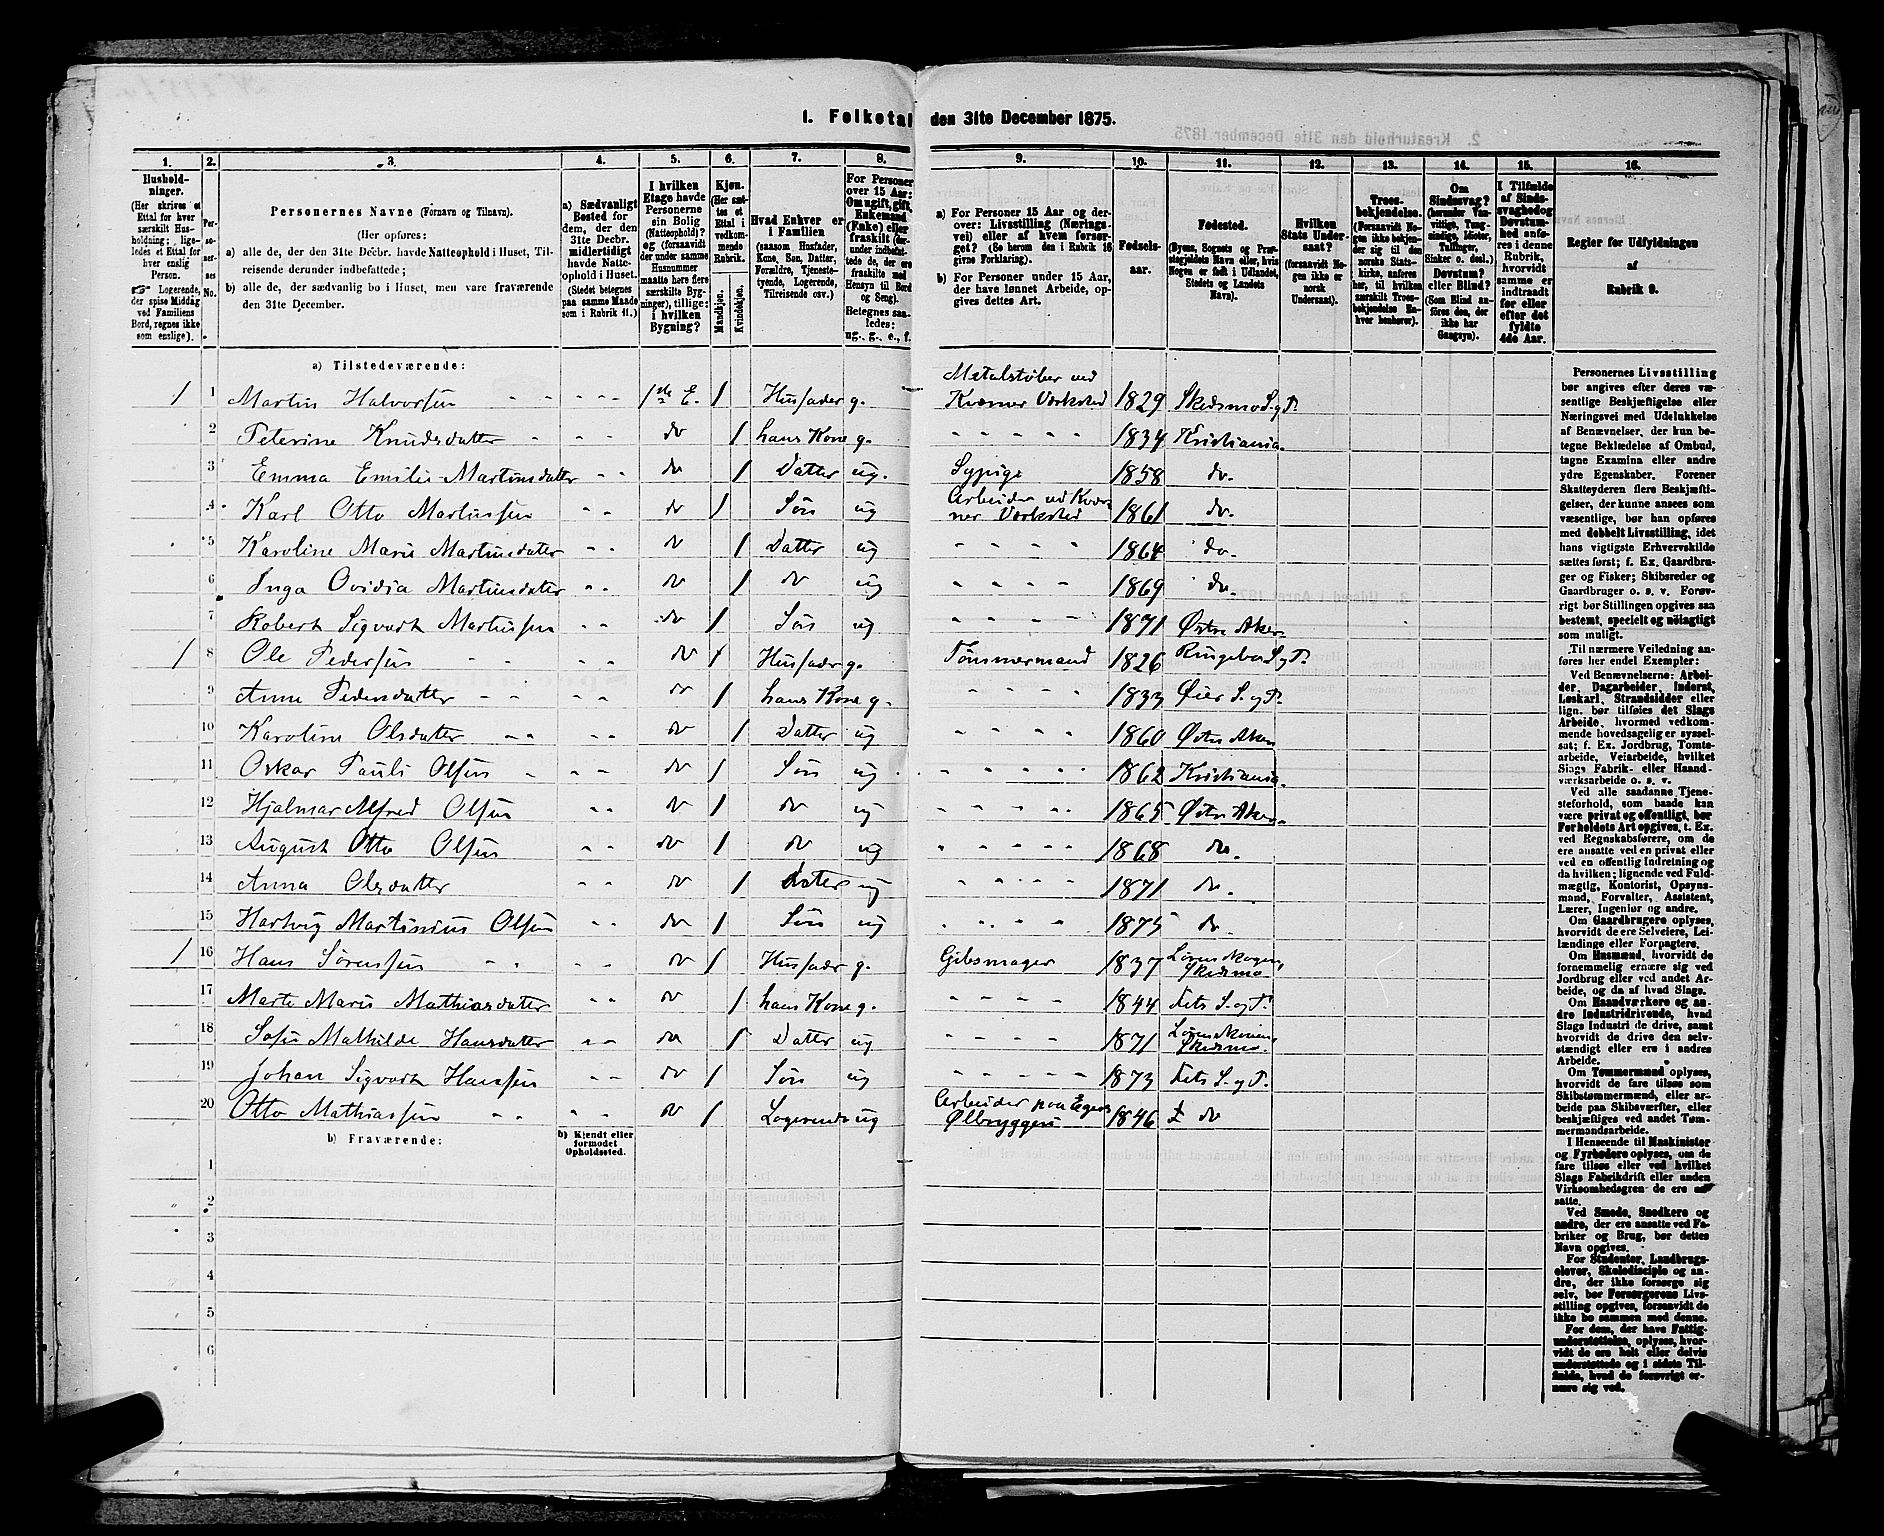 1. Folketal den 31te December 1875.
1. 2. 3. 4. 5. 6. 7. 8. 9. 10. 11. 12. 13. 14. 15. 16.
Husholdninger.
(Her skrives et Ettal for hver særskilt Husholdning; ligeledes et Ettal for hver enslig Person.
☞ Logerende, der spise Middag ved Familiens Bord, regnes ikke som enslige).
Personernes No.
Personernes Navne (Fornavn og Tilnavn).
(Her opføres:
a) alle de, der den 31te Decbr. havde Natteophold i Huset, Tilreisende derunder indbefattede;
b) alle de, der sædvanlig bo i Huset, men vare fraværende den 31te December.
a) Sædvanligt Bosted for dem, der den 31te Decbr. midlertidigt havde Natteophold i Huset. (Stedet betegnes paa samme Maade som i Rubrik 11.)
I hvilken Etage havde Personerne sin Bolig (Natteophold)? og (forsaavidt der under samme Husnummer maatte høre flere særskilte Bygninger), tillige: i hvilken Bygning?
Kjøn. (Her sættes et Ettal i vedkommende Rubrik.
Mandkjøn. Kvindekjøn.
Hvad Enhver er i Familien
(saasom Husfader, Kone, Søn, Datter, Forældre, Tjenestetyende, Logerende, Tilreisende osv.)
For Personer over 15 Aar: Om ugift, gift, Enkemand (Enke) eller fraskilt (derunder indbefattede de, der ere fraskilte med Hensyn til Bord og Seng).
Betegnes saaledes: ug., g., e., f.
a) For Personer 15 Aar og derover: Livsstilling (Næringsvei) eller af hvem forsørget? (Se herom den i Rubrik 16 givne Forklaring).
b) For Personer under 15 Aar, der have lønnet Arbeide, opgives dettes Art.
Fødselsaar.
Fødested.
(Byens, Sognets og Præstegjeldets Navn eller, hvis Nogen er født i Udlandet, Stedets og Landets Navn).
Hvilken Stats Undersaat?
(forsaavidt Nogen ikke er norsk Undersaat).
Troesbekjendelse.
(Forsaavidt Nogen ikke bekjender sig til den norske Statskirke, anføres her, til hvilken særskilt Troesbekjendelse Enhver henhører).
Om Sindssvag? (herunder Vanvittige, Tungsindige, Idioter, Tullinger, Sinker o. desl.) Døvstum? eller Blind? (Som Blind anføres den, der ikke har Gangsyn).
I Tilfælde af Sindssvaghed og Døvstumhed anføres i denne Rubrik, hvorvidt samme er indtraadt før eller efter det fyldte 4de Aar.
Regler for Udfyldningen af Rubrik 9.
a) Tilstedeværende:
1 1 Martin Halvorsen 1ste E. 1 Husfader g. Metalstøber ved Kværner Værksted 1829 Skedsmo S. g P.
2 Peterine Knudsdatter do 1 hans Kone g. 1834 Kristiania
3 Emma Emilie Martinsdatter do 1 Datter ug. Sypige 1858 do.
4 Karl Otto Martinsen do 1 Søn ug Arbeider ved Kværner Værksted 1861 do.
5 Karoline Marie Martinsdatter do 1 Datter ug 1864 do.
6 Inga Ovidia Martinsdatter do 1 do ug 1869 do.
7 Robert Sigvart Martinsen do 1 Søn ug 1871 Østre Aker
1 8 Ole Pedersen do 1 Husfader g. Tømmermand 1826 Ringebo S. g P.
9 Anne Pedersdatter do 1 hans Kone g. 1833 Øier S. og P.
10 Karoline Olsdatter do 1 Datter ug 1860 Østre Aker
11 Oskar Pauli Olsen do 1 Søn ug 1862 Kristiania
12 Hjalmar Alfred Olsen do 1 do ug 1865 Østre Aker
13 August Otto Olsen do 1 do ug 1868 do.
14 Anna Olsdatter do 1 Datter ug 1871 do.
15 Hartvig Martinius Olsen do 1 Søn ug 1875 do.
1 16 Hans Sørensen do 1 Husfader g. Gibsmager 1837 Lørenskogen, Skedsmo
17 Marte Marie Mathiasdatter do 1 hans Kone g. 1844 Fets S. og P.
18 Sofie Mathilde Hansdatter do 1 Datter ug 1871 Skedsmo.
19 Johan Sigvart Hansen do 1 Søn ug 1873 Fets S. og P.
20 Otto Mathiassen do 1 Logerende ug Arbeider paa Egers Ølbryggeri 1846 do
b) Fraværende: b) Kjendt eller formodet Opholdssted.
1
2
3
4
5
6
Personernes Livsstilling bør angives efter deres væsentlige Beskjæftigelse eller Næringsvei med Udelukkelse af Benævnelser, der kun betegne Beklædelse af Ombud, tagne Examina eller andre ydre Egenskaber. Forener Skatteyderen flere Beskjæftigelser, der kunne ansees som væsentlige, bør han opføres med dobbelt Livsstilling, idet hans vigtigste Erhvervskilde sættes først; f. Ex. Gaardbruger og Fisker; Skibsreder og Gaardbruger o. s. v. Forøvrigt bør Stillingen opgives saa bestemt, specielt og nøiagtigt som muligt.
Til nærmere Veiledning anføres her endel Exempler:
Ved Benævnelserne: Arbeider, Dagarbeider, Inderst, Løskarl, Strandsidder eller lign. bør tilføies det Slags Arbeide, hvormed vedkommende hovedsagelig er sysselsat; f. Ex. Jordbrug, Tomtearbeide, Veiarbeide, hvilket Slags Fabrik- eller Haandværksarbeide o. s. v.
Ved alle saadanne Tjenesteforhold, som baade kan være privat og offentligt, bør Forholdets Art opgives, t. Ex. ved Regnskabsførere, om de ere ansatte ved en privat eller ved en offentlig Indretning og da hvilken; lignende ved Fuldmægtig, Kontorist, Opsynsmand, Forvalter, Assistent, Lærer, Ingeniør og andre.
Om Gaardbrugere oplyses, hvorvidt de ere Selveiere, Leilændinge eller Forpagtere.
Om Husmænd, hvorvidt de fornemmelig ernære sig ved Jordbrug eller ved andet Arbeide, og da af hvad Slags.
Om Haandværkere og andre Industridrivende, hvad Slags Industri de drive, samt hvorvidt de drive den selvstændigt eller ere i andres Arbeide.
Om Tømmermænd oplyses, hvorvidt de fare tilsøs som Skibstømmermænd, eller arbeide paa Skibsværfter, eller beskjæftiges ved andet Tømmermandsarbeide.
I Henseende til Maskinister og Fyrbødere oplyses, om de fare tilsøs eller ved hvilket Slags Fabrikdrift eller anden Virksomhedsgren de ere ansatte.
Ved Smede, Snedkere og andre, der ere ansatte ved Fabriker og Brug, bør dettes Navn opgives.
For Studenter, Landbrugselever, Skoledisciple og andre, der ikke forsørge sig selv, bør Forsørgerens Livsstilling opgives, forsaavidt de ikke bo sammen med denne.
For dem, der have Fattigunderstøttelse, oplyses, hvorvidt de ere helt eller delvis understøttede og i sidste Tilfælde, hvad de forøvrigt ernære sig ved.